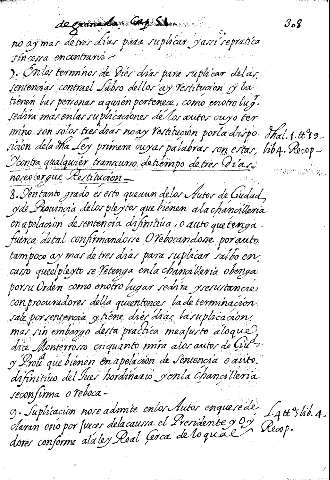 de granada. Cap. 51. 308
no ay mas de tres dias para suplicar, y assi se pratica
sin cossa en contrario
7. En los terminos de Diez dias para suplicar de las
sentencias contra el Lapso dellos ay restitucion y la
tienen las personas a quien pertenece, como en otro lug.r
se dira mas en las suplicaciones de los autos cuyo ter
mino son solos tres dias no ay restitucion por la dispo
sicion de la dha Ley primera cuyas palabras son estas,
Y contra qualquier transcurso de tiempo de tres Dias,
no se otorgue Restitucion
8. Y en tanto grado es esto que aun de los Autos de Ciudad
y de Provincia de los pleytos que bienen a la chancilleria
en apelacion de sentencia difinitiva, o auto que tenga
fuerça de tal confirmandose O rebocandose por auto
tampoco ay mas de tres dias para suplicar salbo en
casso que el pleyto se Retenga en la chancilleria o benga
por su Orden como en otro lugar se dira y se sustancie
con procuradores della que entonces la determinacion
sale por sentencia y tiene diez dias la suplicacion,
mas sin embargo desta pratica me ajusto a lo que
dice Monterroso en quanto mira a los autos de Ciu.d
y Prov.a que bienen en apelacion de Sentencia o auto
difinitivo del Juez hordinario, y en la chancilleria
se confirma o reboca
9. Suplicacion no se admite en los Autos en que se de
claran o no por Jueces de la caussa el Presidente y Oy
dores conforme a la ley Real Cerca de lo qual
lib. 4. Recop.
L. 4. tt.o lib. 4.
Recop.